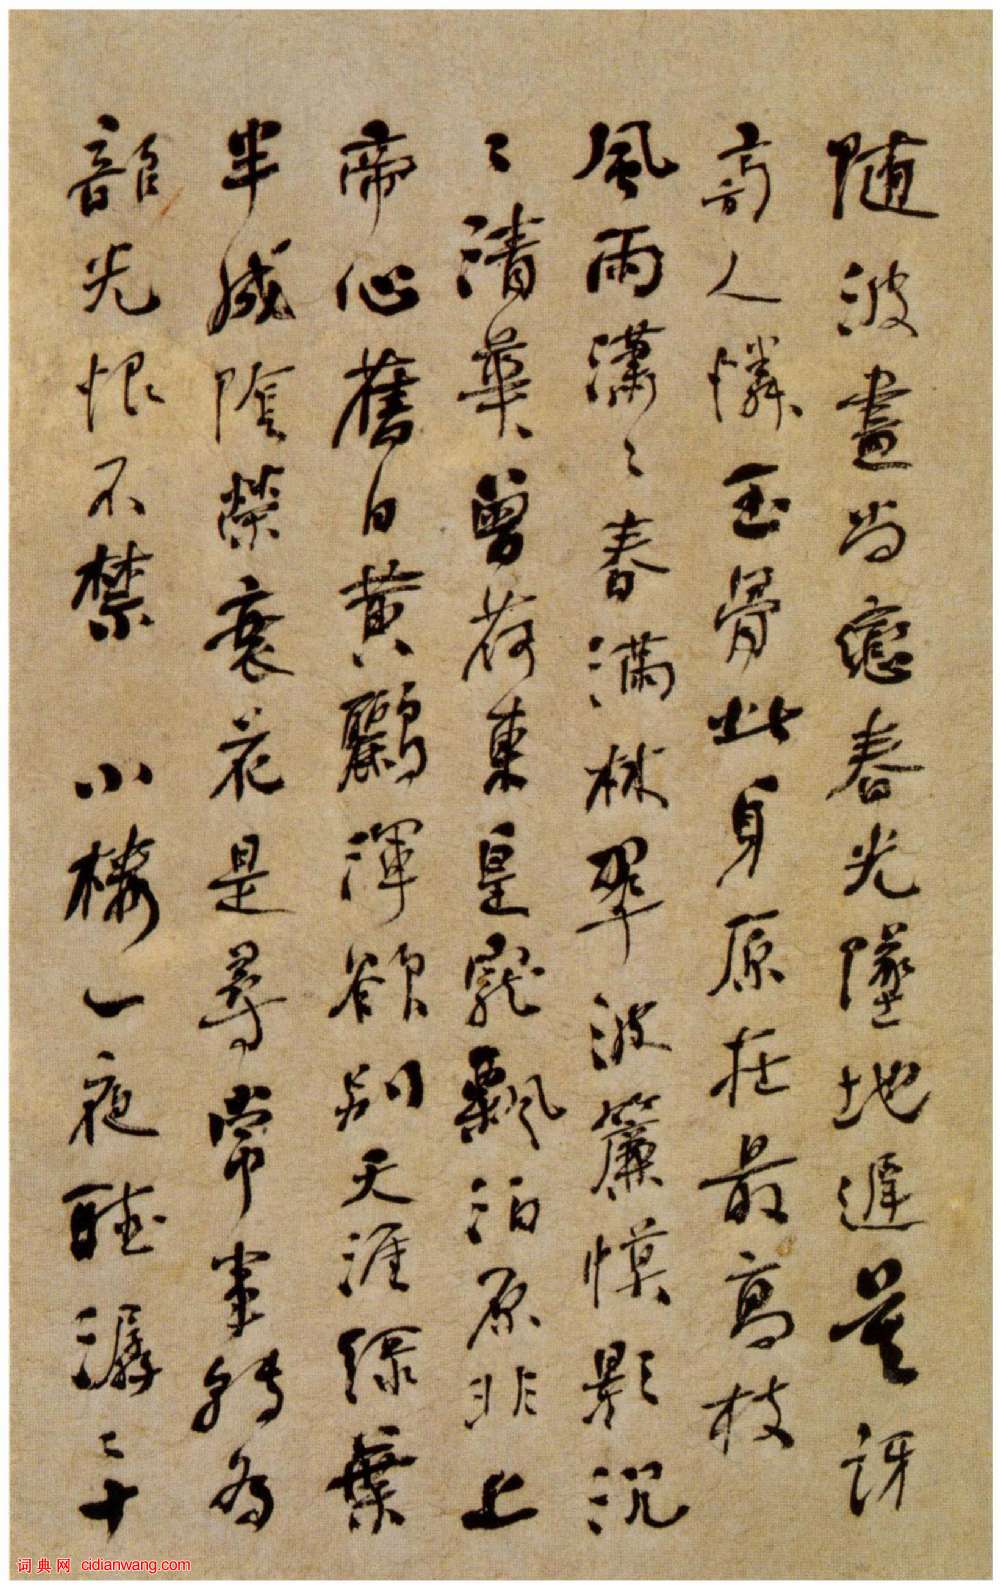 随波盡尚戀春光墜地遲莫訝
高人憐玉骨此身原在最高枝
風雨瀟〻春滿林翠波簾幙影沉
〻清華曾荷東皇寵飄泊原非上
帝心舊日黃鸝渾欲別天涯綠葉
半成陰榮衰花是尋常事轉爲
韶光恨不禁　小樓一夜聽潺〻十
词典网 cidianwang.com